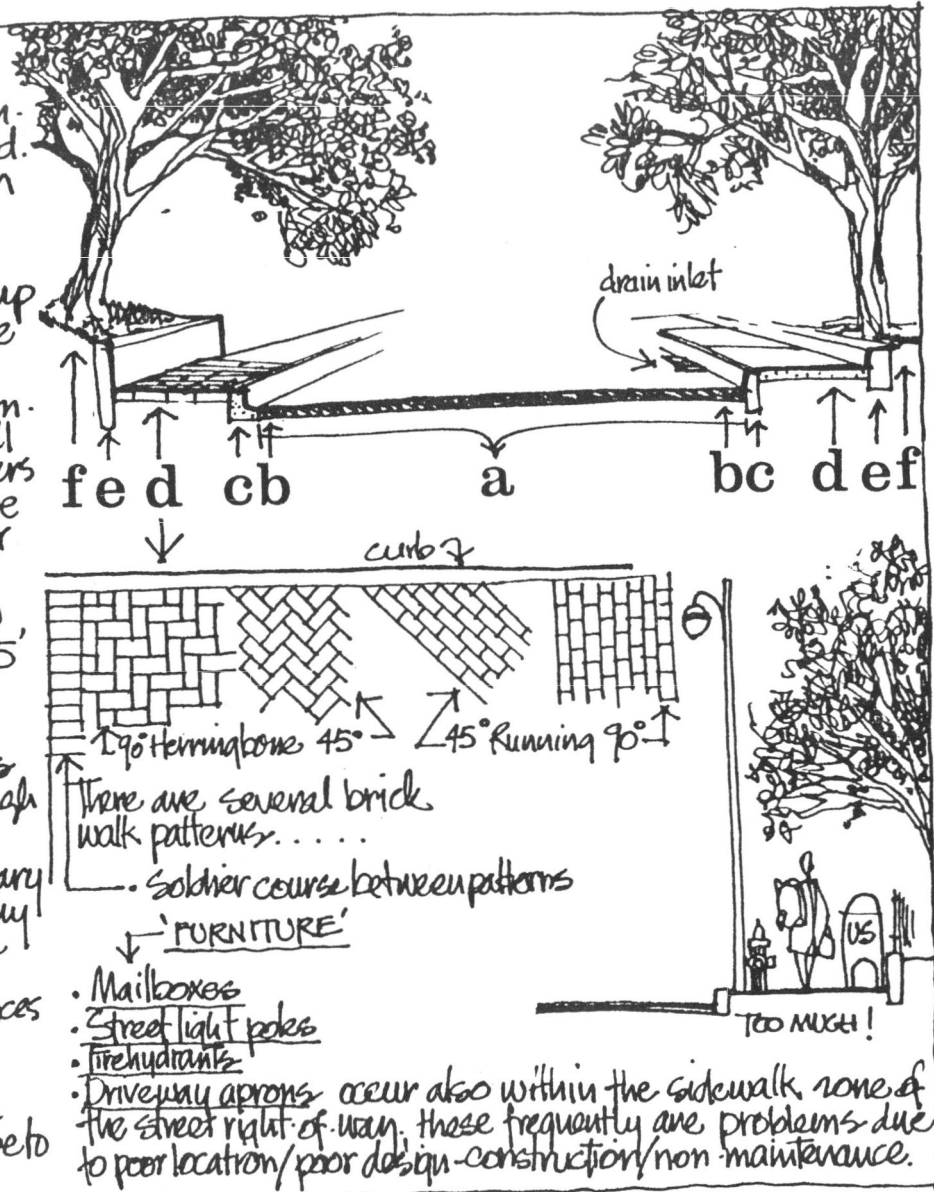 n.
d.
n
up
e
m.
l
ers
e
r
5'
s
ugh
ary
ny
ces
be to
drain inlet
f e d c b a b c d e f
curb
90° Herringbone 45° 45° Running 90°
There are several brick
walk patterns.....
• Soldier course between patterns
'FURNITURE'
• Mailboxes
• Street light poles
• Firehydrants
• Driveway aprons occur also within the sidewalk zone of
the street right-of-way. these frequently are problems due
to poor location/poor design-construction/non maintenance.
US
TOO MUCH!